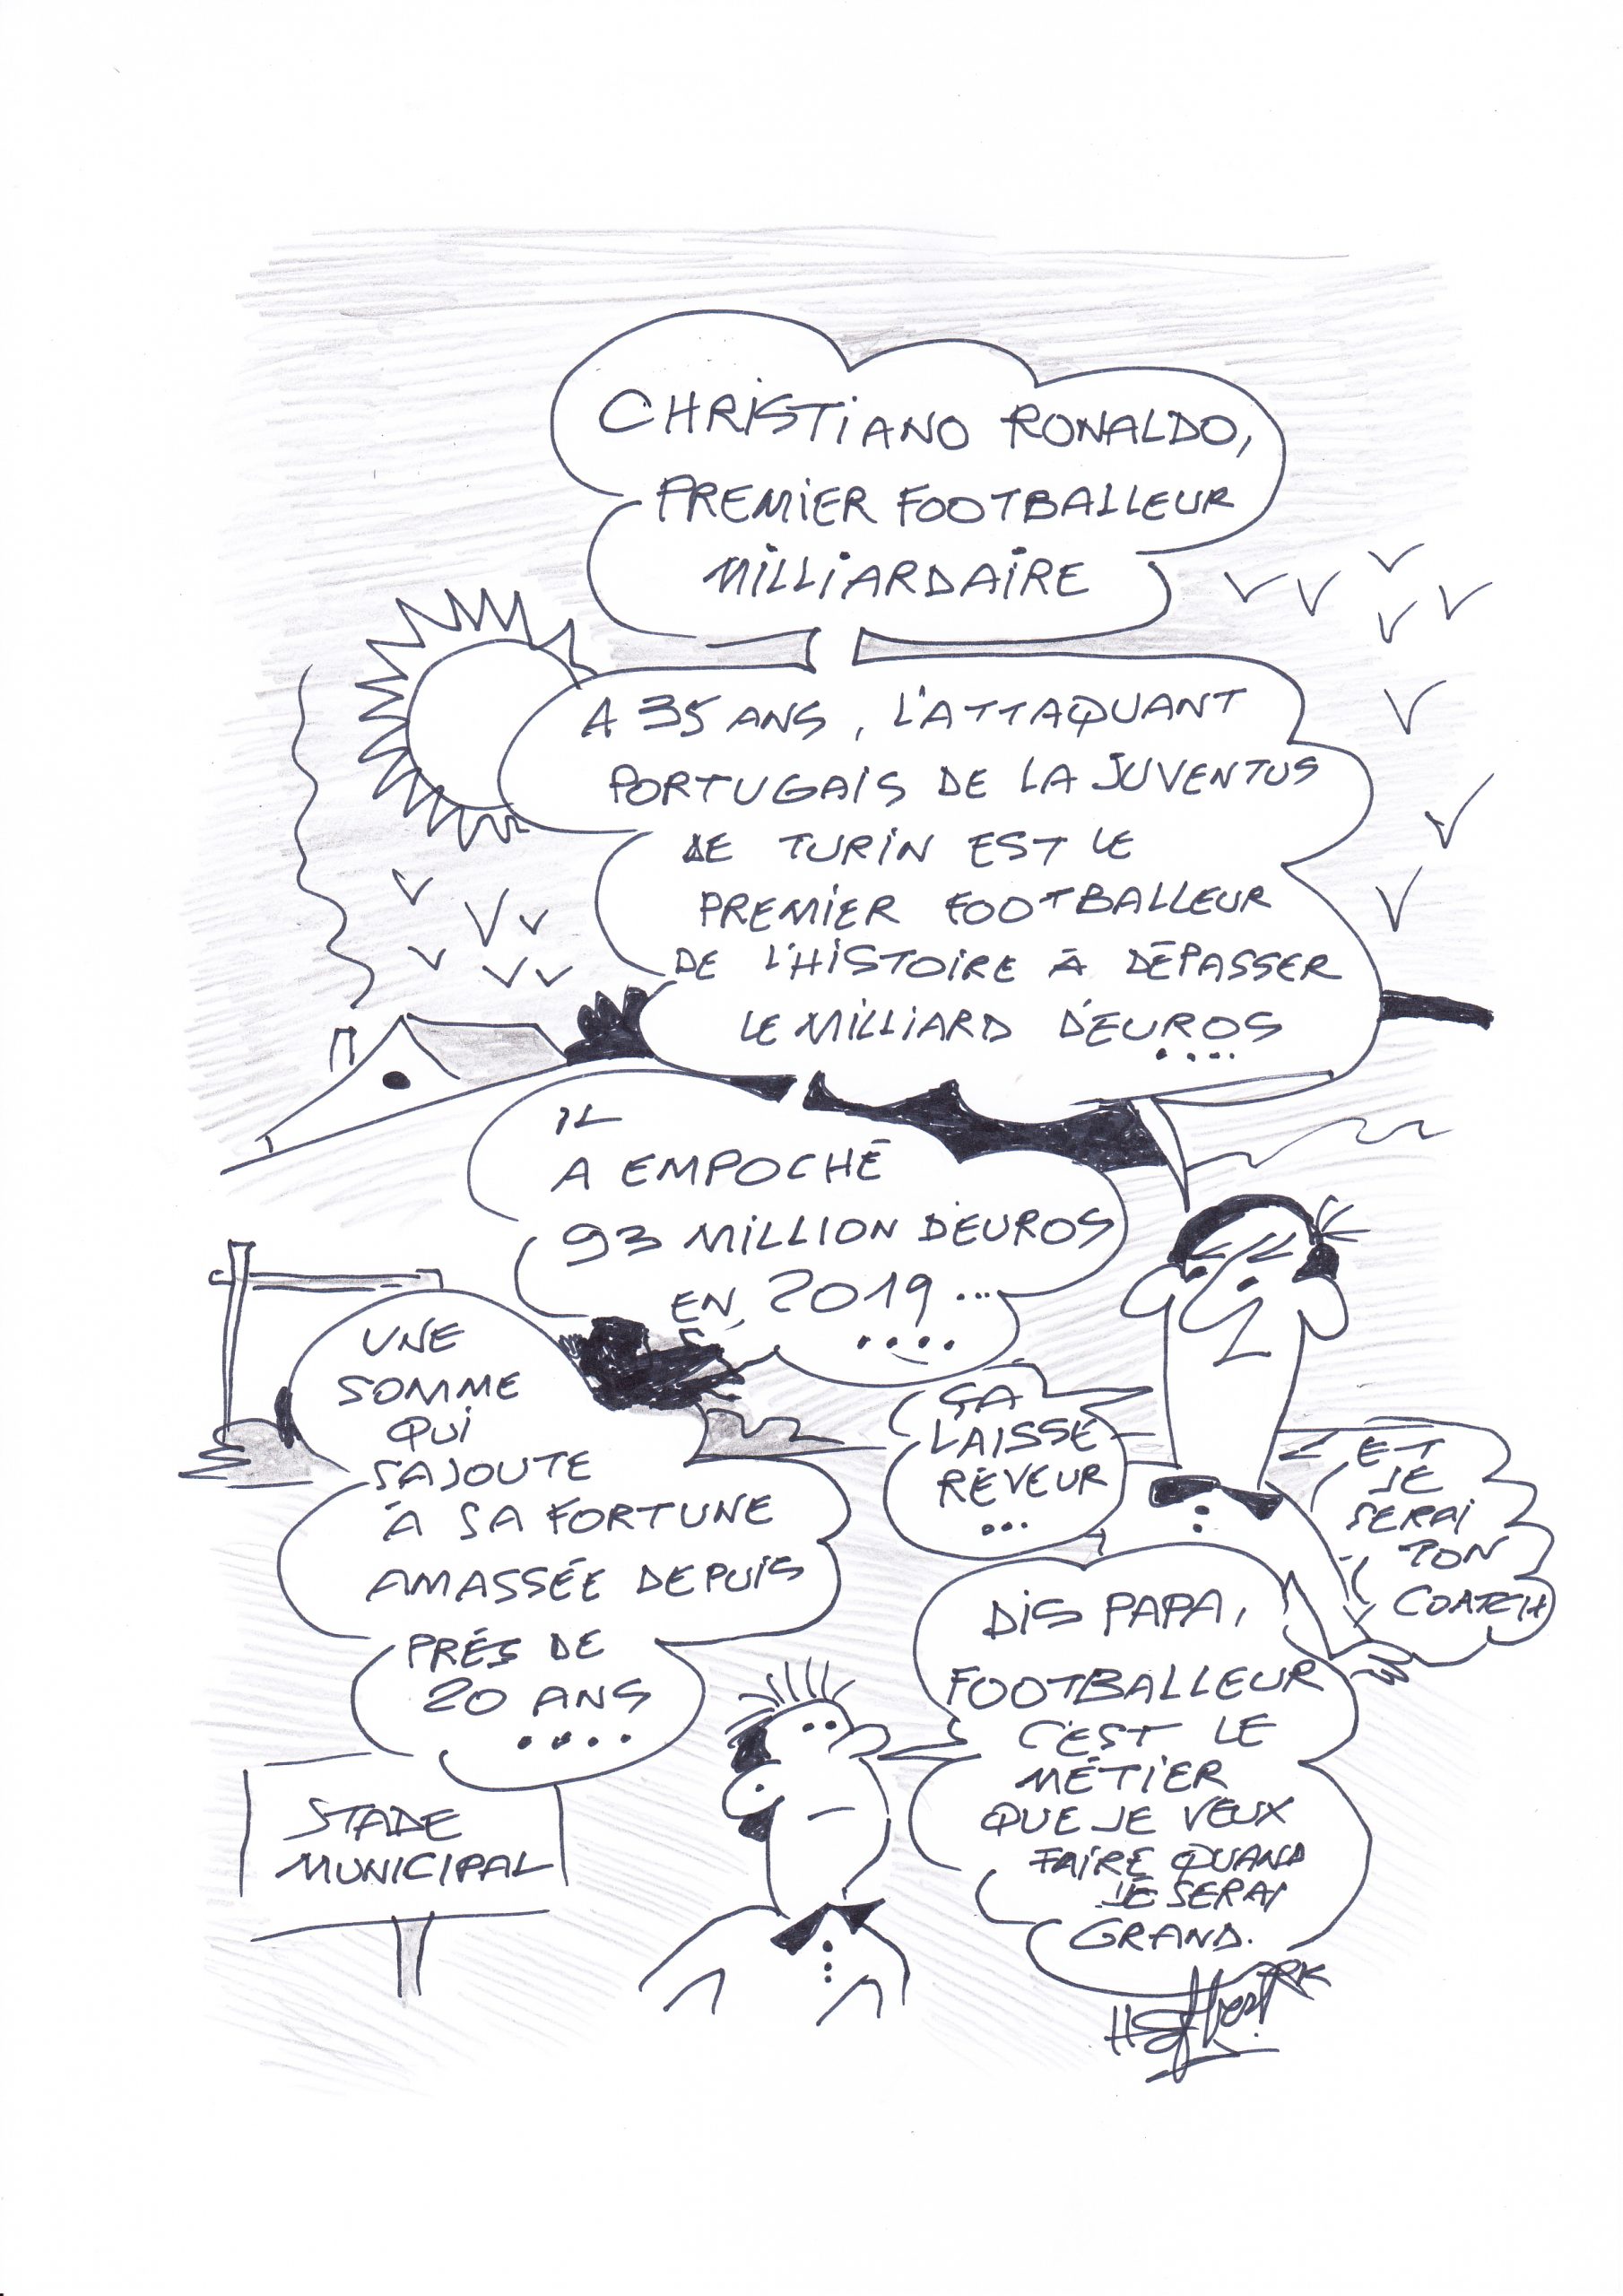 CHRISTIANO RONALDO,
PREMIER FOOTBALLEUR
MILLIARDAIRE
A 35 ANS, L'ATTAQUANT
PORTUGAIS DE LA JUVENTUS
DE TURIN EST LE
PREMIER FOOTBALLEUR
DE L'HISTOIRE À DÉPASSER
LE MILLIARD D'EUROS
....
IL
A EMPOCHÉ
93 MILLION D'EUROS
EN 2019...
....
UNE
SOMME
QUI
S'AJOUTE
À SA FORTUNE
AMASSÉE DEPUIS
PRÉS DE
20 ANS
....
ÇA
LAISSE
RÊVEUR
...
DIS PAPA,
FOOTBALLEUR
C'EST LE
MÉTIER
QUE JE VEUX
FAIRE QUAND
JE SERAI
GRAND.
ET
JE
SERAI
TON
COATCH
STADE
MUNICIPAL